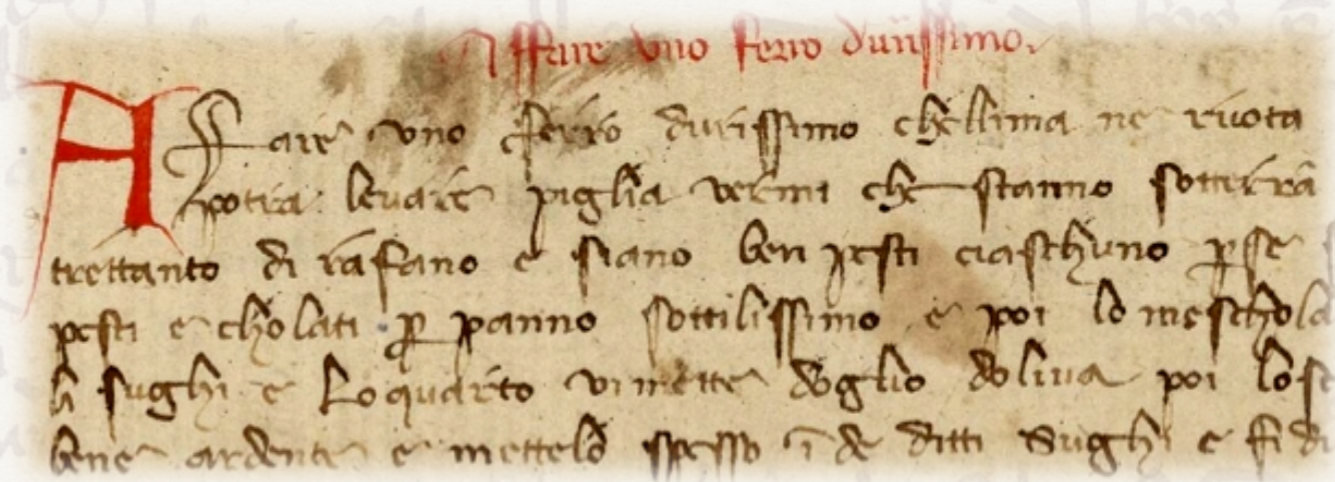 Affare uno ferro durissimo.
A ffare uno ferro durissimo chellima ne ruota
potra levare piglia vermi che stanno sotterra
trettanto di rafano e siano ben pesti ciaschuno p se
pesti e cholati p panno sottilissimo e poi lo meschola
li sughi e loquarto vi mette doglio doliva poi lo
bene ardente e mettelo spesso i de ditti sughi e